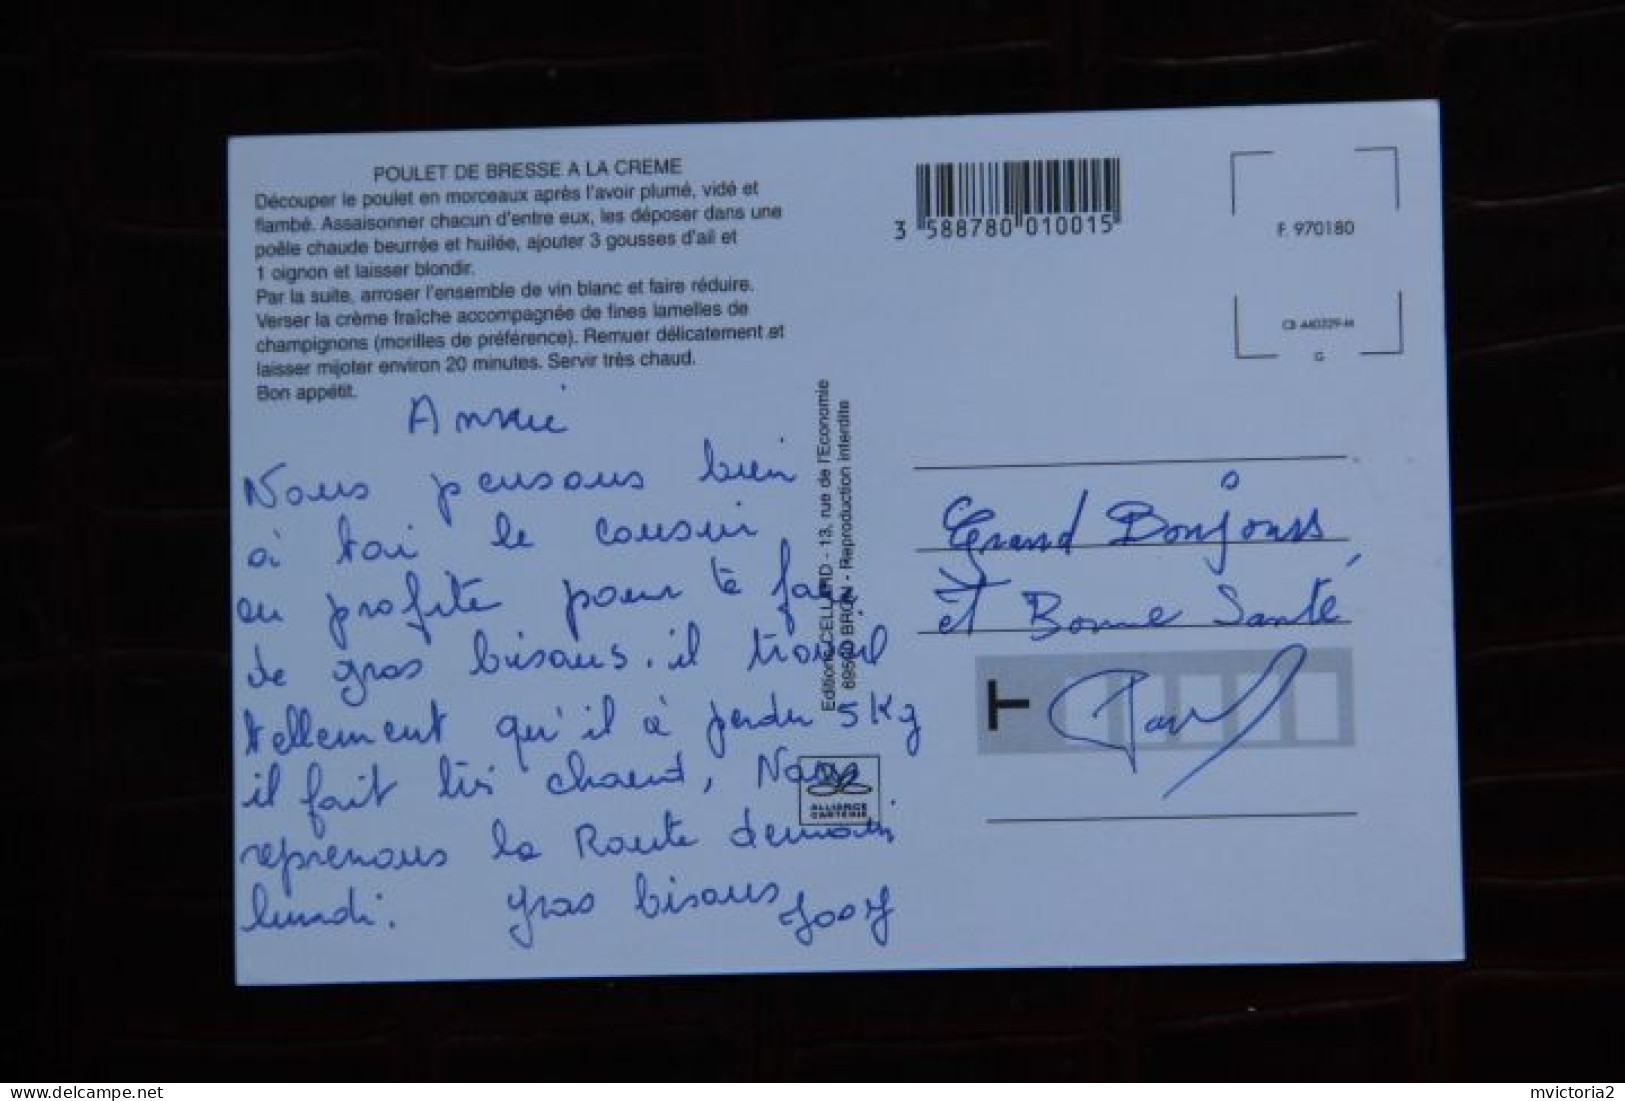 POULET DE BRESSE A LA CREME
Découper le poulet en morceaux après l'avoir plumé, vidé et
flambé. Assaisonner chacun d'entre eux, les déposer dans une
poêle chaude beurrée et huilée, ajouter 3 gousses d'ail et
1 oignon et laisser blondir.
Par la suite, arroser l'ensemble de vin blanc et faire réduire.
Verser la crème fraîche accompagnée de fines lamelles de
champignons (morilles de préférence). Remuer délicatement et
laisser mijoter environ 20 minutes. Servir très chaud.
Bon appétit.
Nous pensons bien
à toi le cousin
en profite pour te faire
de gros bisous. il travail
tellement qu'il à perdu 5 Kg
il fait très chaud, Nous
reprenons la Route demain
lundi. gros bisous
Editions CELLARD - 13, rue de l'Economie
69500 BRON - Reproduction interdite
ALLIANCE
CARTERIE
3 588780 010015
F. 970180
G
Grand Bonjours
et Bonne Santé
T
mvictoria2